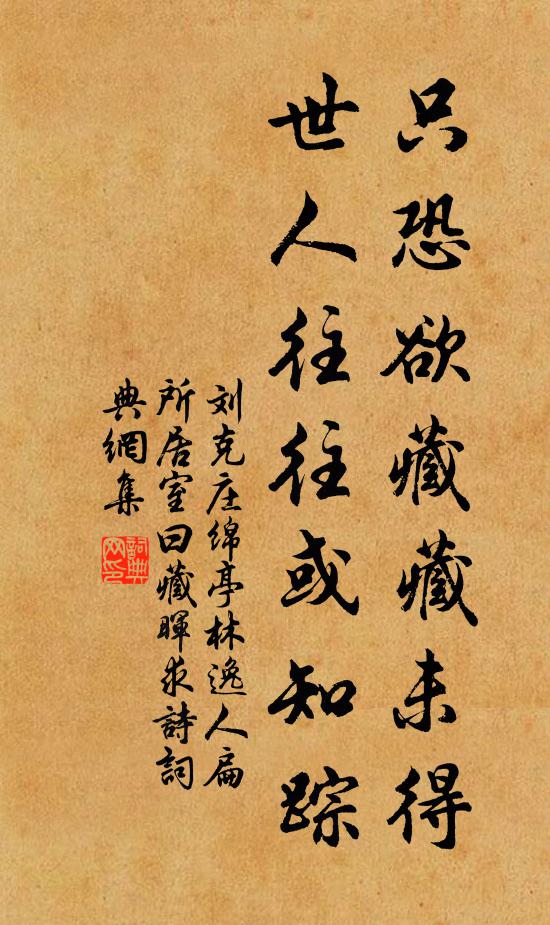 只恐欲藏藏未得
世人往往或知踪
刘克庄绵亭林逸人扁
所居室曰藏暉求詩詞
典網集
詞典网印